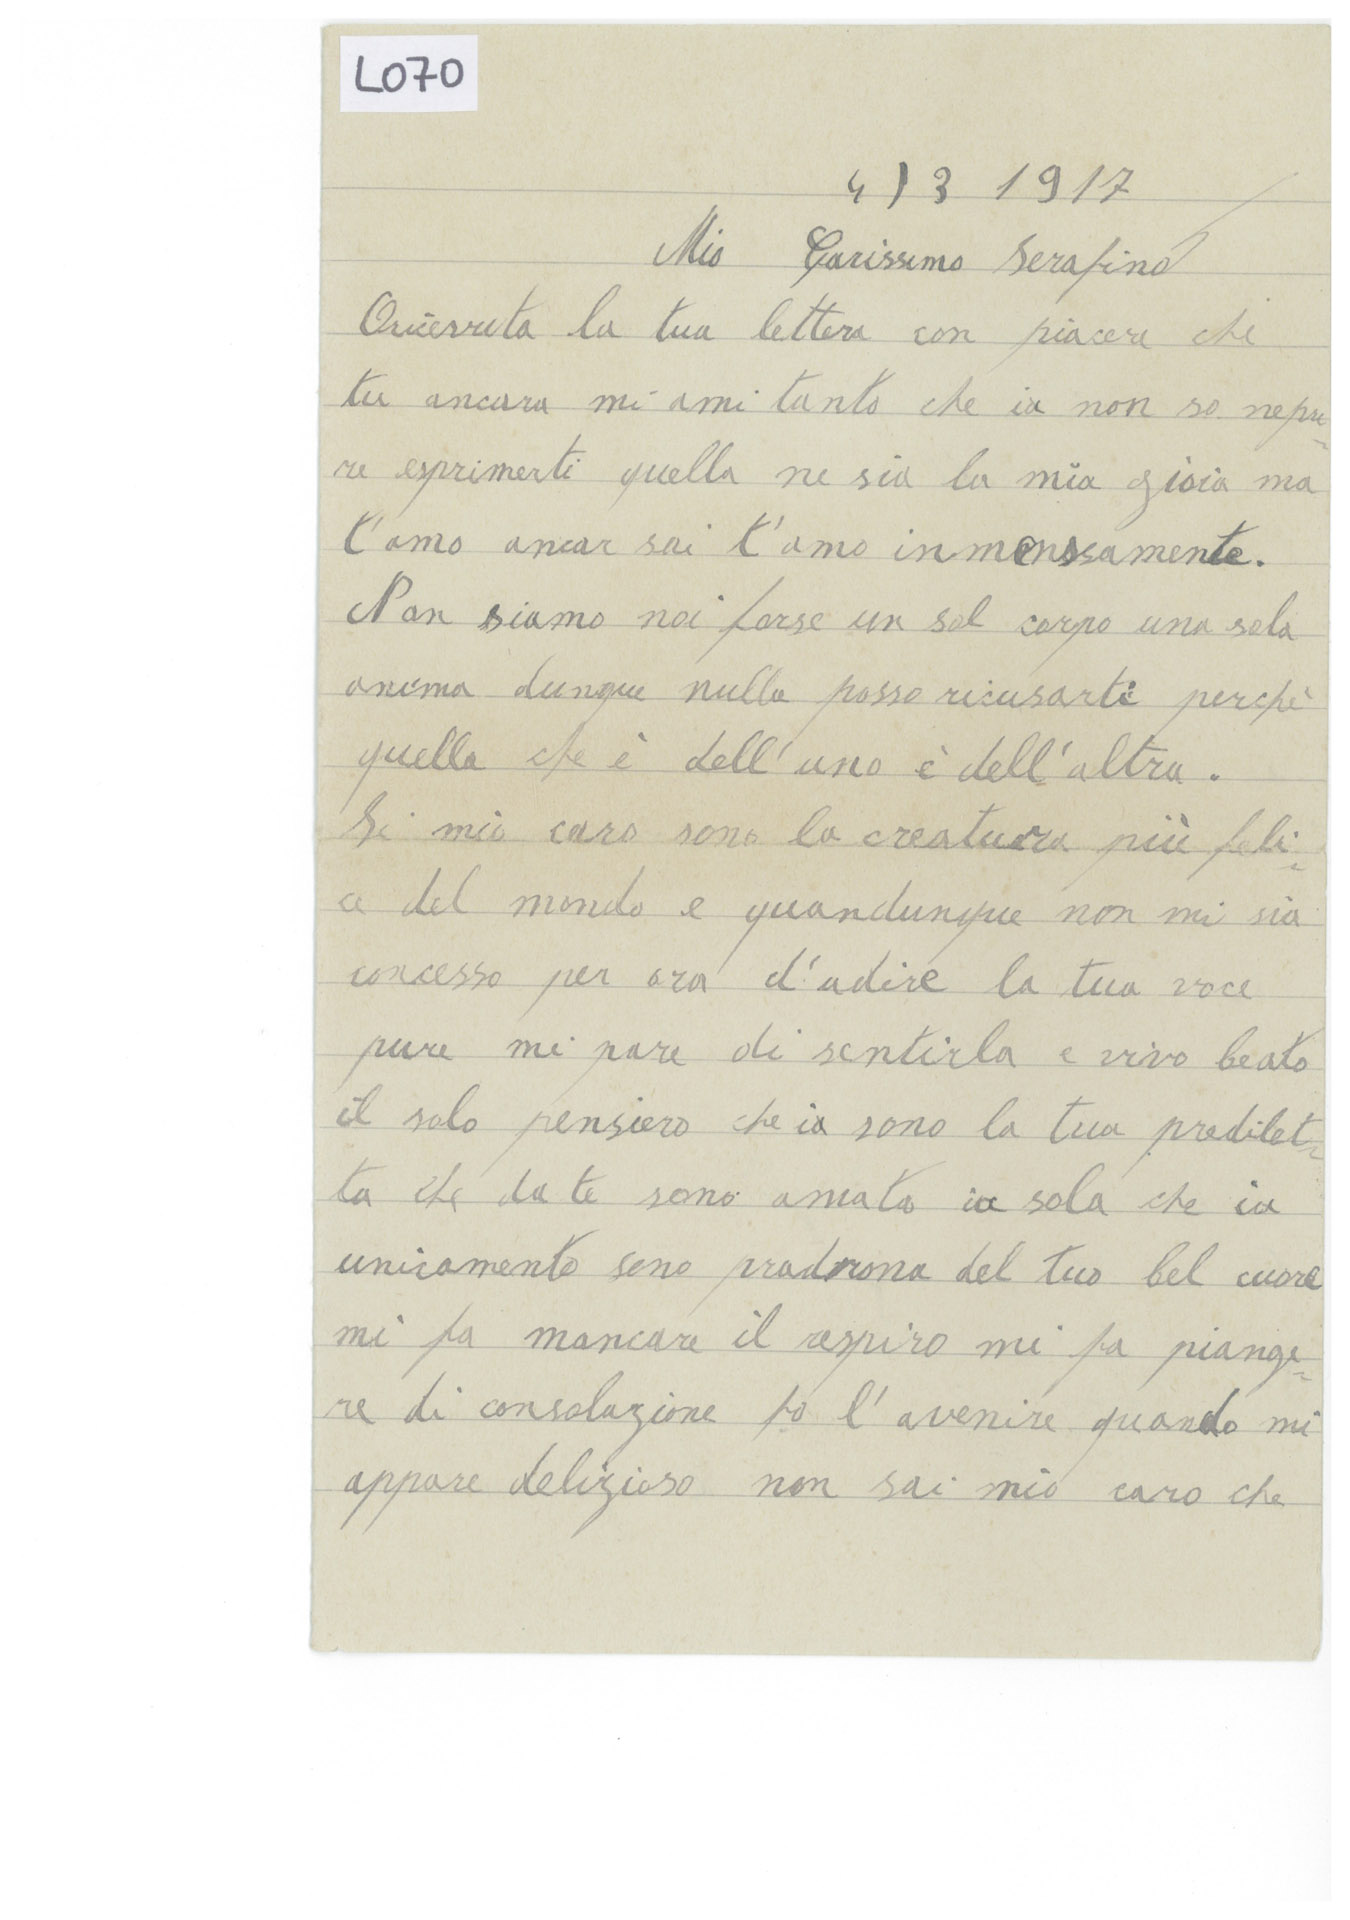 L070
4)3 1917
Mio Carissimo Serafino
la tua lettera con piacere che
tu ancora mi ami tanto che io non so nepu-
re esprimerti quella ne sia la mia gioia ma
t'amo ancor sai t'amo inmenssamente.
Non siamo noi forse un sol corpo una sola
anima dunque nulla posso ricusarti perchè
quello che è dell'uno è dell'altra.
Si mio caro sono la creatura più feli-
ce del mondo e quandunque non mi sia
concesso per ora d'udire la tua voce
pure mi pare di sentirla e vivo beato
il solo pensiero che io sono la tua predilet-
ta che da te sono amata io sola che io
unicamento sono pradrona del tuo bel cuore
mi fa mancare il respiro mi fa piange-
re di consolazione fo l'avenire quando mi
appare delizioso non sai mio caro che